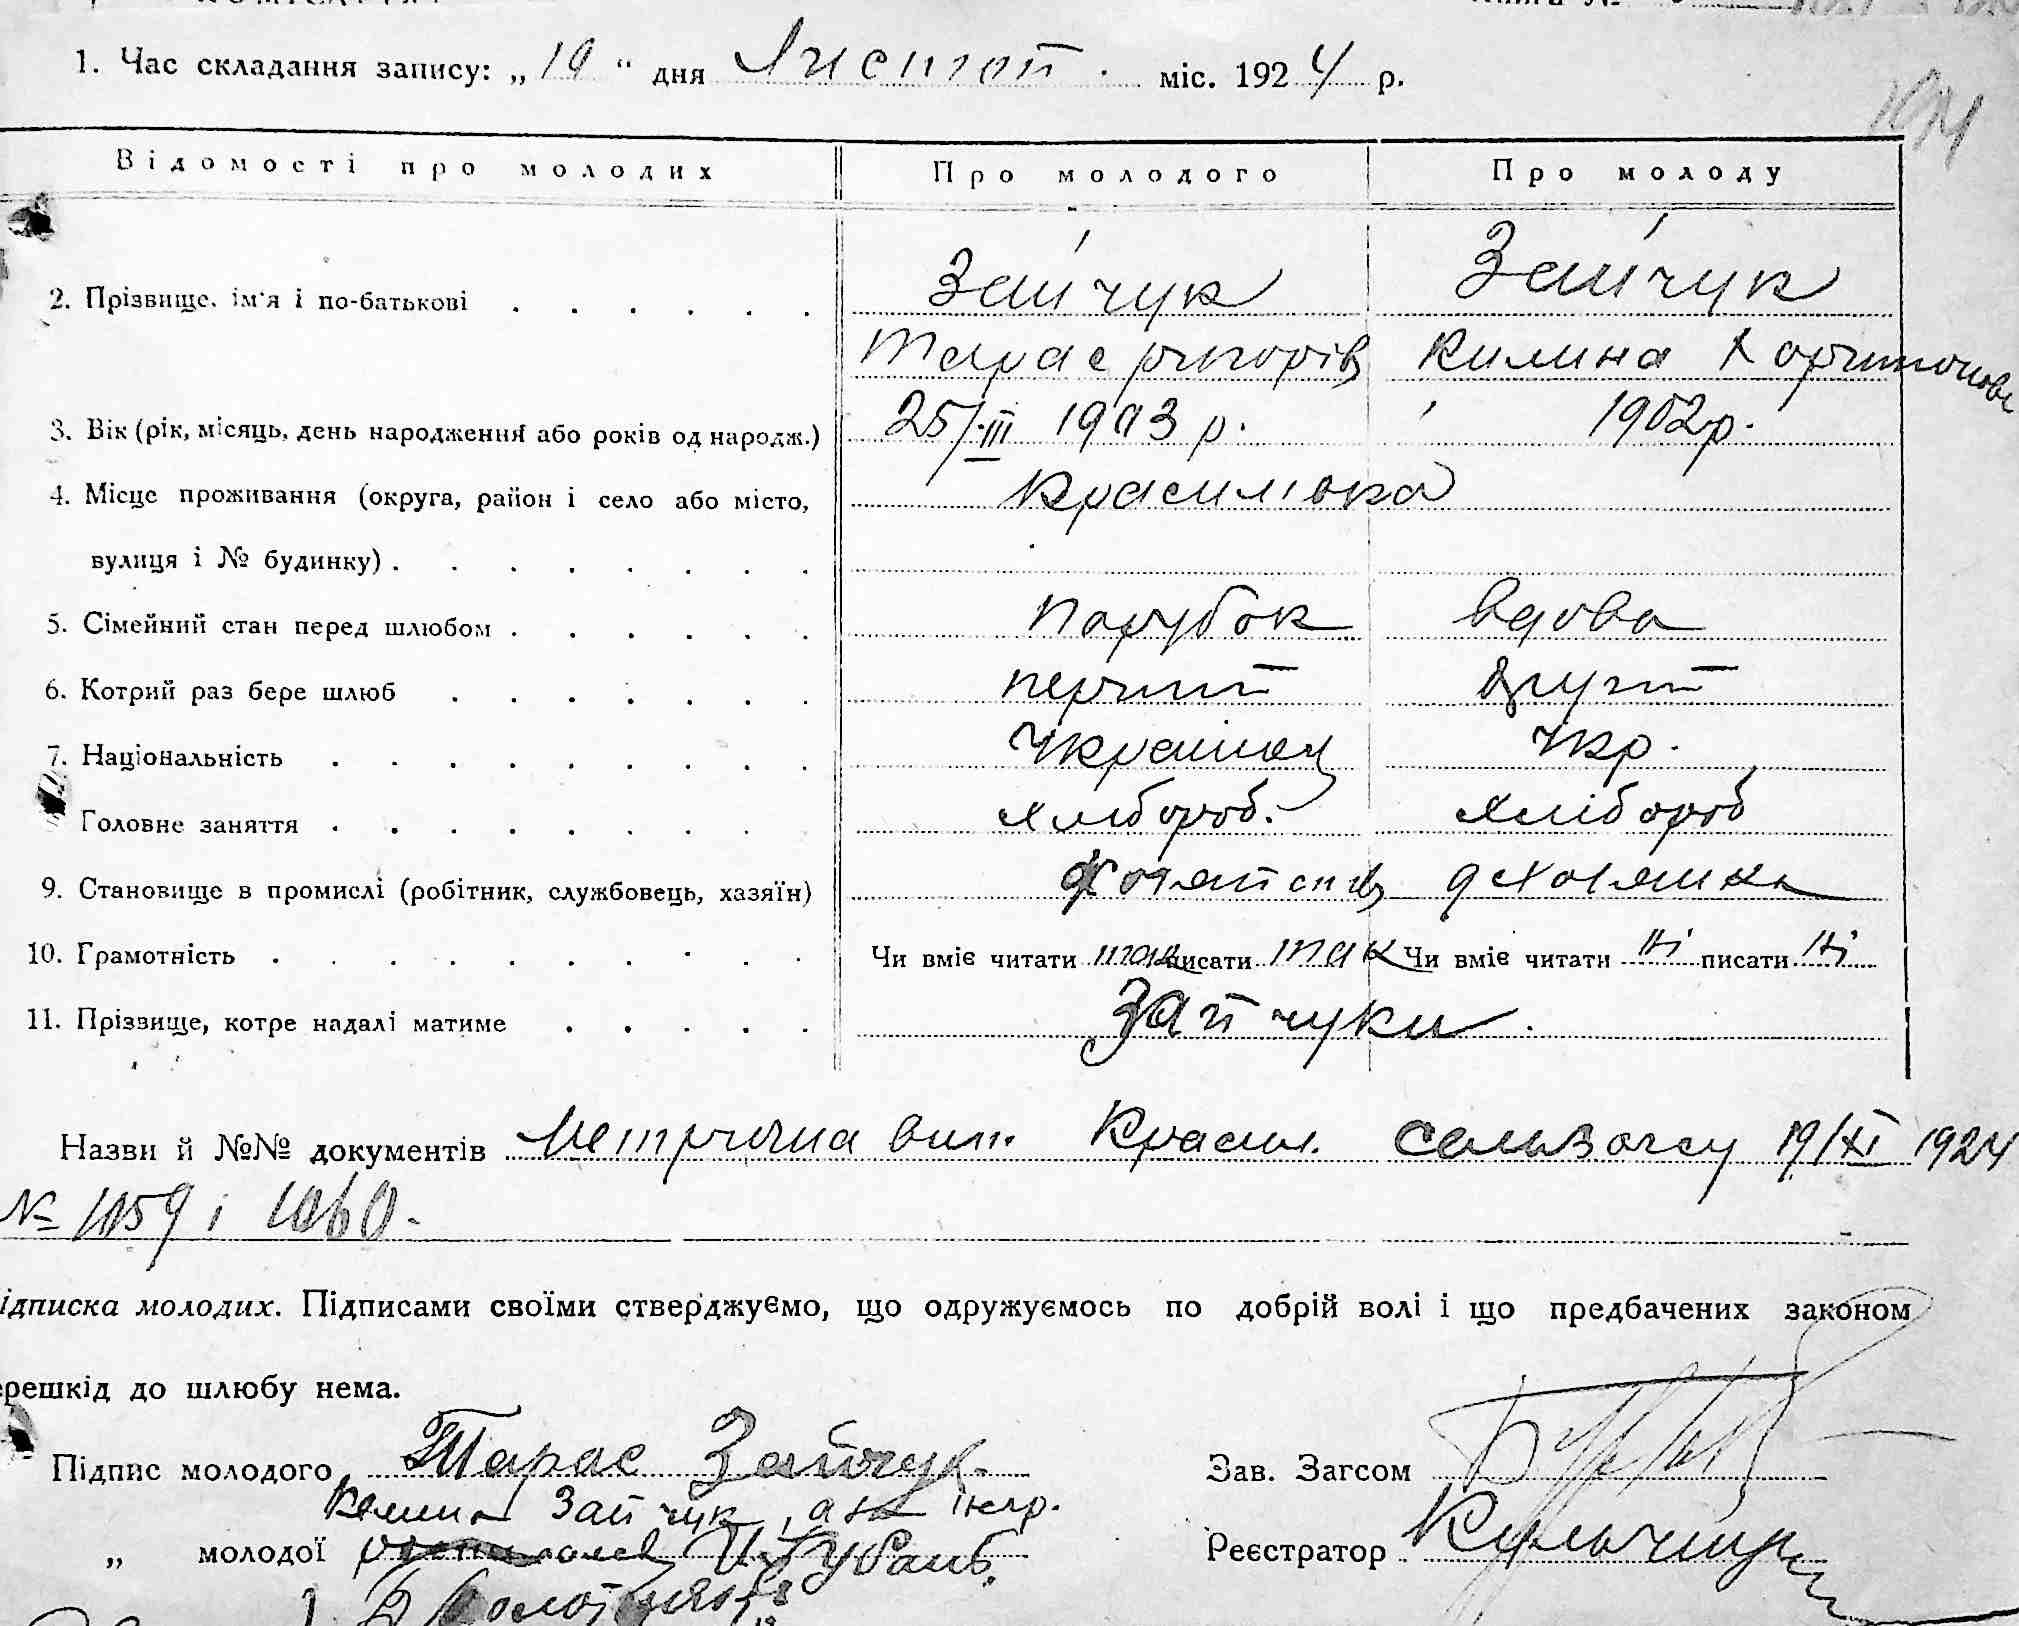 1. Час складання запису: „19“ дня Листоп. міс. 1924 р.
Відомості про молодих Про молодого Про молоду
2. Прізвище, ім'я і по-батькові Зайчук Зайчук
Тарас Григорів Килина Харитонова
3. Вік (рік, місяць, день народження або років од народж.) 25/III 1903 р. 1902 р.
4. Місце проживання (округа, район і село або місто, Красилівка
вулиця і № будинку)
5. Сімейний стан перед шлюбом парубок вдова
6. Котрий раз бере шлюб перший другий
7. Національність Українец укр.
Головне заняття хлібороб. хлібороб
9. Становище в промислі (робітник, службовець, хазяїн)
10. Грамотність Чи вміє читати так писати так Чи вміє читати ні писати ні
11. Прізвище, котре надалі матиме Зайчуки.
Назви й №№ документів Метрична вип. Красил. сельзагсу 19/XI 1924
№ 1059 і 1060.
ідписка молодих. Підписами своїми стверджуємо, що одружуємось по добрій волі і що предбачених законом
ерешкід до шлюбу нема.
Підпис молодого Тарас Зайчук Зав. Загсом
Зайчук, а за
„ молодої Реєстратор